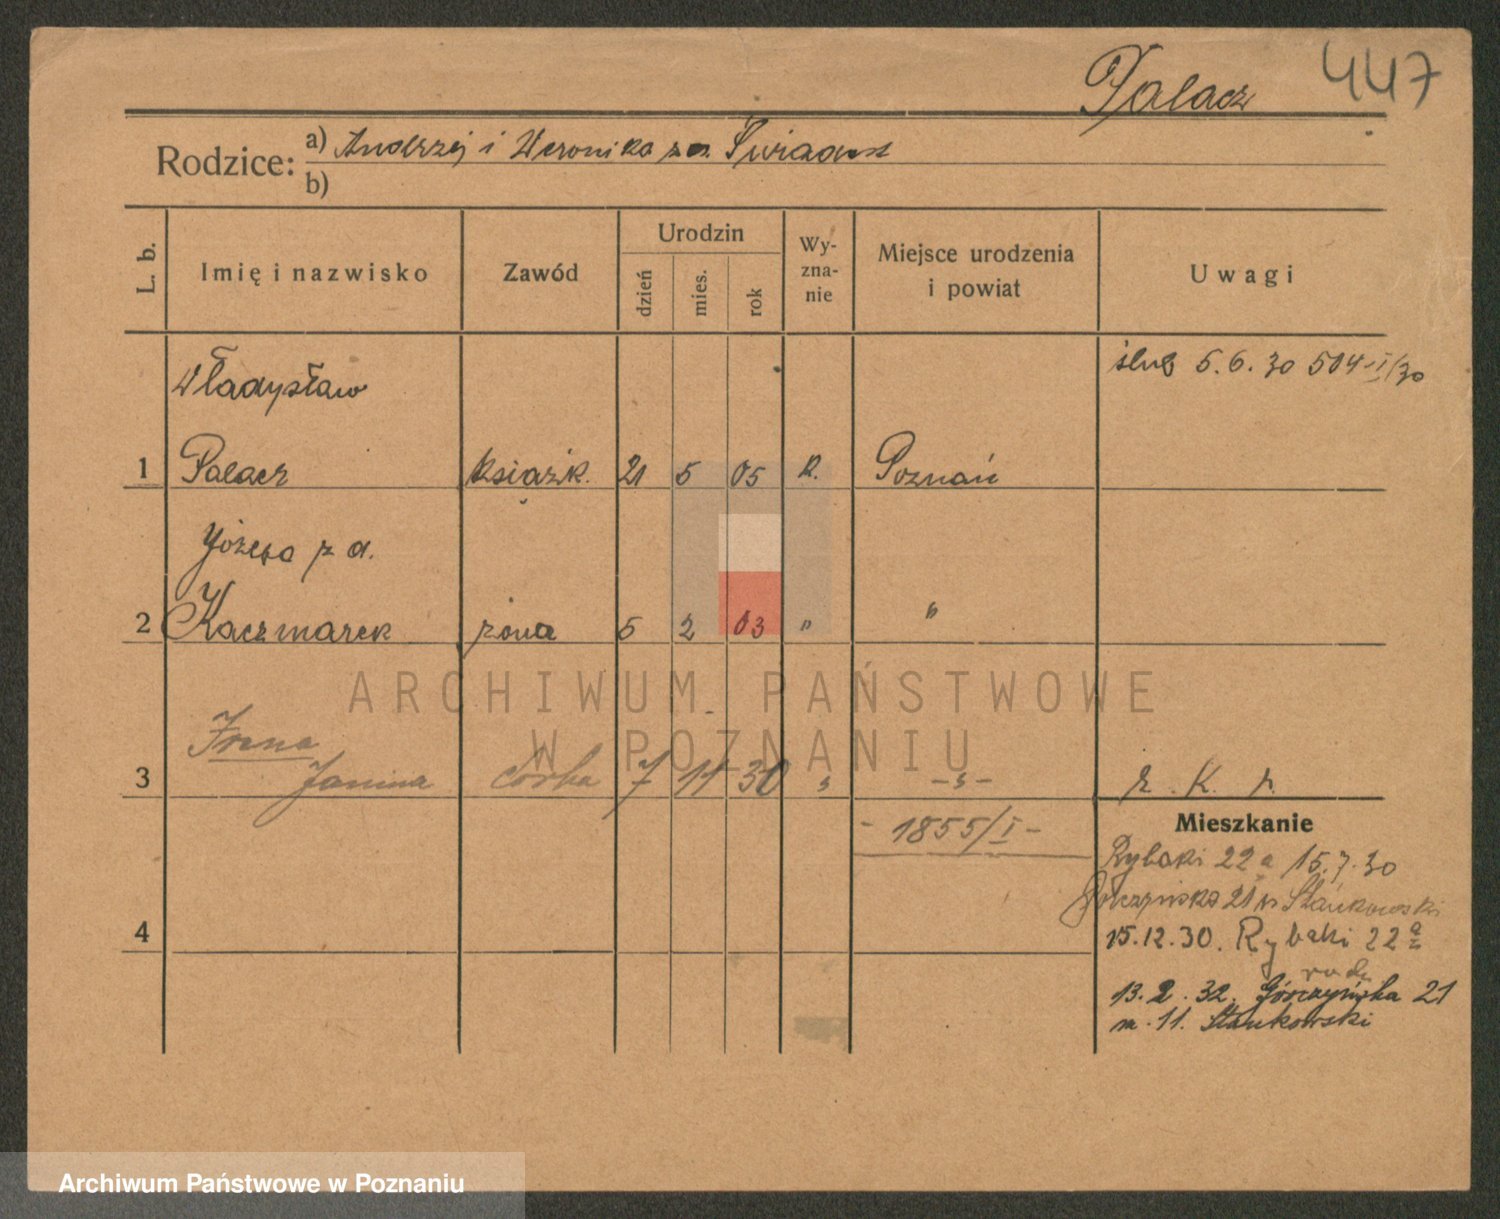 Palacz 447
Rodzice: a) Andrzej i Weronika z d.
b)
L. b. Imię i nazwisko Zawód Urodzin dzień mies. rok Wy-zna-nie Miejsce urodzenia i powiat Uwagi
Władysław ślub 5.6.30 504 I/30
1 Palacz książk. 21 5 05 R. Poznań
Józefa z d.
2 Kaczmarek żona 5 2 03 " "
ARCHIWUM PAŃSTWOWE
W POZNANIU
Irena
3 Janina córka 7 11 30 " -"-
- 1855/I -
Mieszkanie
Rybaki 22a 15.7.30
Górczyńska 21 Stankowski
4 15.12.30. Rybaki 22a
13.2.32. Górczyńska 21
m. 11. Stankowski
Archiwum Państwowe w Poznaniu